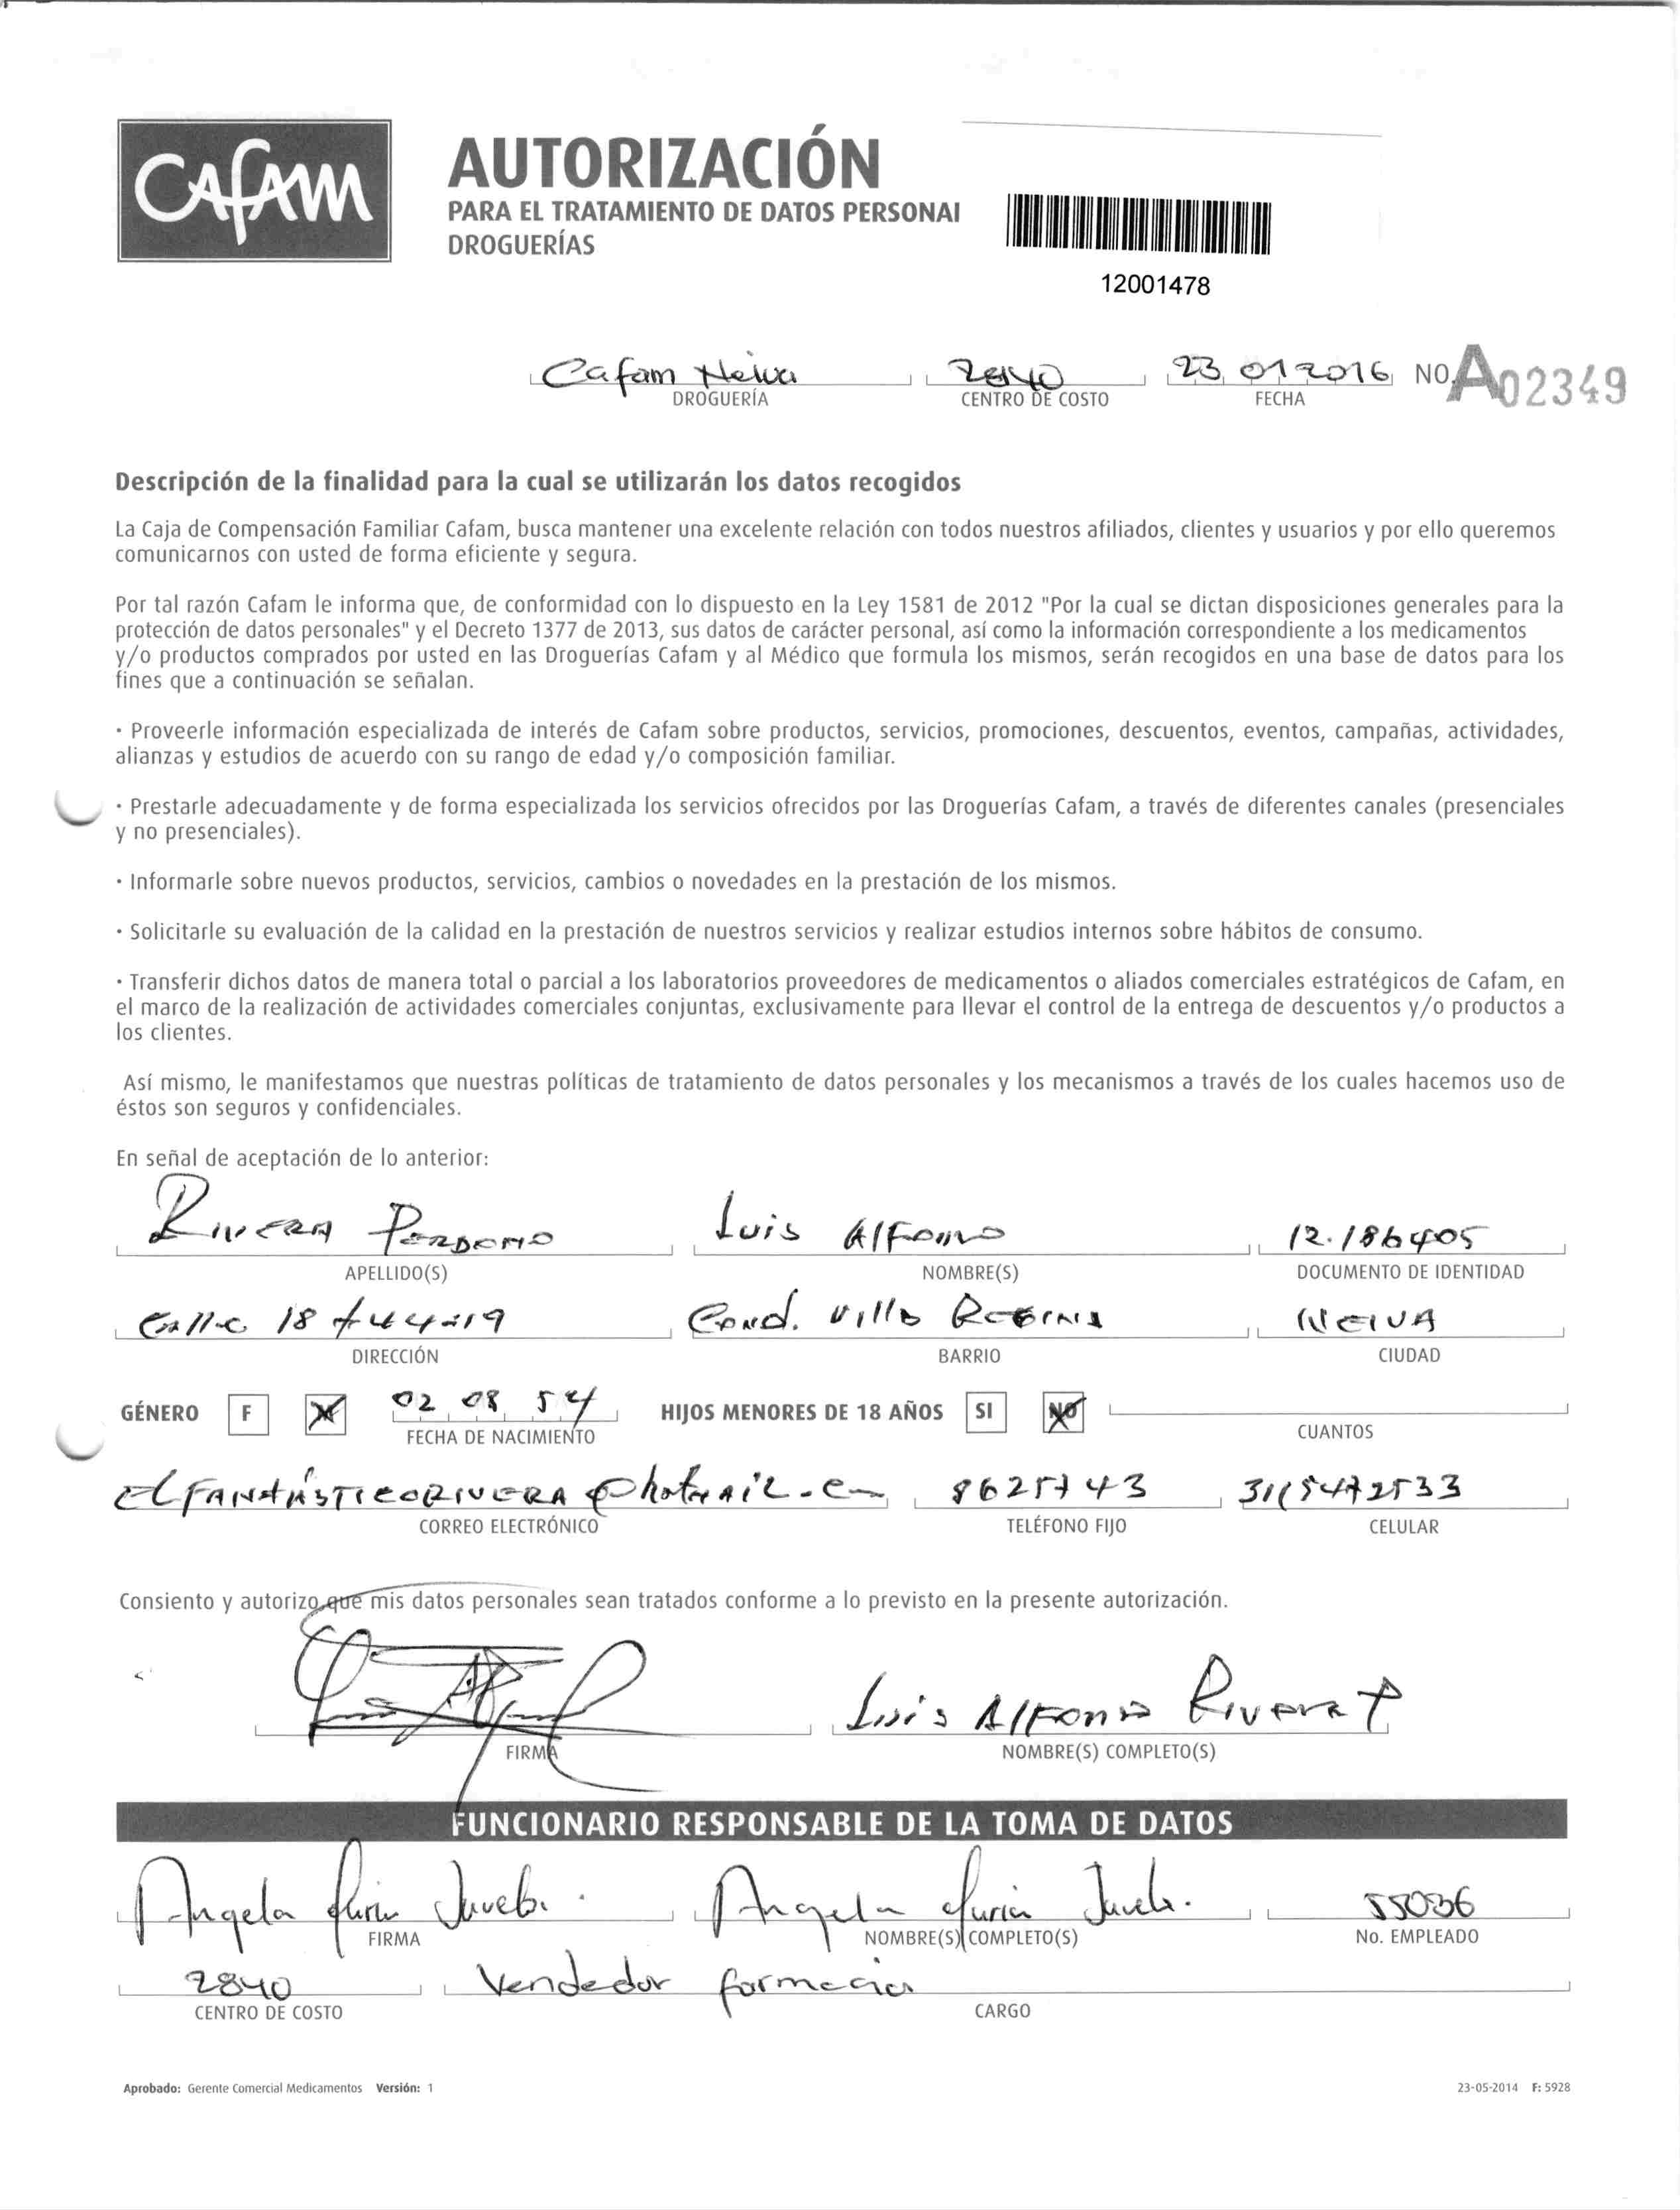 CAFAM
AUTORIZACIÓN
PARA EL TRATAMIENTO DE DATOS PERSONAI
DROGUERÍAS
12001478
Cafam Neiva 2840 23 01 2016 NO. A02349
DROGUERÍA CENTRO DE COSTO FECHA
Descripción de la finalidad para la cual se utilizarán los datos recogidos
La Caja de Compensación Familiar Cafam, busca mantener una excelente relación con todos nuestros afiliados, clientes y usuarios y por ello queremos
comunicarnos con usted de forma eficiente y segura.
Por tal razón Cafam le informa que, de conformidad con lo dispuesto en la Ley 1581 de 2012 "Por la cual se dictan disposiciones generales para la
protección de datos personales" y el Decreto 1377 de 2013, sus datos de carácter personal, así como la información correspondiente a los medicamentos
y/o productos comprados por usted en las Droguerías Cafam y al Médico que formula los mismos, serán recogidos en una base de datos para los
fines que a continuación se señalan.
· Proveerle información especializada de interés de Cafam sobre productos, servicios, promociones, descuentos, eventos, campañas, actividades,
alianzas y estudios de acuerdo con su rango de edad y/o composición familiar.
· Prestarle adecuadamente y de forma especializada los servicios ofrecidos por las Droguerías Cafam, a través de diferentes canales (presenciales
y no presenciales).
· Informarle sobre nuevos productos, servicios, cambios o novedades en la prestación de los mismos.
· Solicitarle su evaluación de la calidad en la prestación de nuestros servicios y realizar estudios internos sobre hábitos de consumo.
· Transferir dichos datos de manera total o parcial a los laboratorios proveedores de medicamentos o aliados comerciales estratégicos de Cafam, en
el marco de la realización de actividades comerciales conjuntas, exclusivamente para llevar el control de la entrega de descuentos y/o productos a
los clientes.
Así mismo, le manifestamos que nuestras políticas de tratamiento de datos personales y los mecanismos a través de los cuales hacemos uso de
éstos son seguros y confidenciales.
En señal de aceptación de lo anterior:
RIVERA PERDOMO Luis Alfonso 12.186405
APELLIDO(S) NOMBRE(S) DOCUMENTO DE IDENTIDAD
Calle 18 # 44-19 Cond. Villa Regina NEIVA
DIRECCIÓN BARRIO CIUDAD
GÉNERO F M 02 08 54 HIJOS MENORES DE 18 AÑOS SI NO
FECHA DE NACIMIENTO CUANTOS
ELFANTÁSTICORIVERA@hotmail. 8625743 3115472533
CORREO ELECTRÓNICO TELÉFONO FIJO CELULAR
Consiento y autorizo que mis datos personales sean tratados conforme a lo previsto en la presente autorización.
Luis Alfonso Rivera P
FIRMA NOMBRE(S) COMPLETO(S)
FUNCIONARIO RESPONSABLE DE LA TOMA DE DATOS
Angela Angela 55036
FIRMA NOMBRE(S) COMPLETO(S) No. EMPLEADO
2840 Vendedor farmacia
CENTRO DE COSTO CARGO
Aprobado: Gerente Comercial Medicamentos Versión: 1 23-05-2014 F: 5928